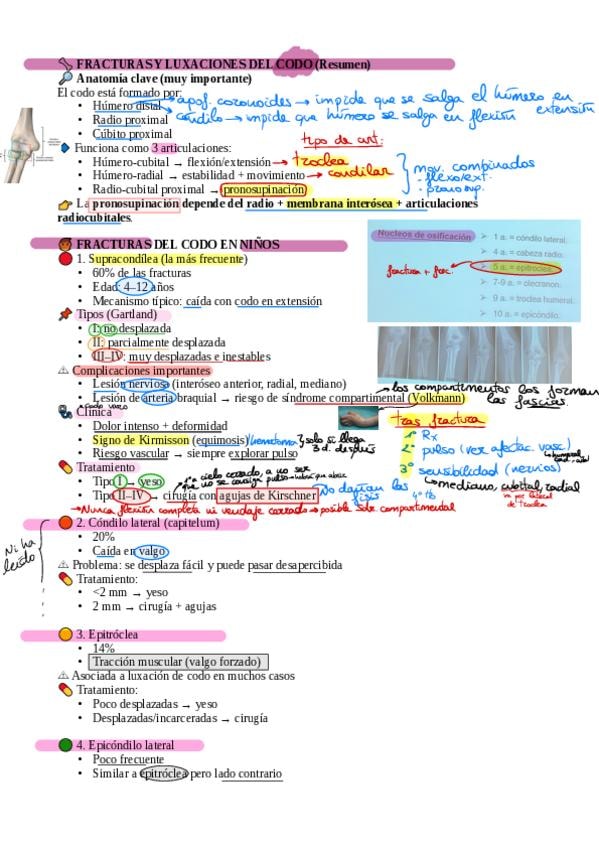 FRACTURAS Y LUXACIONES DEL CODO (Resumen)
Anatomía clave (muy importante)
El codo está formado por:
• Húmero distal → apof. coronoides → impide que se salga el húmero en extensión
• Radio proximal → cóndilo → impide que húmero se salga en flexión
• Cúbito proximal
Funciona como 3 articulaciones: tipo de art:
• Húmero-cubital → flexión/extensión → troclea
• Húmero-radial → estabilidad + movimiento → condilar
• Radio-cubital proximal → pronosupinación
mov. combinados
- flexo/ext.
- pronosup.
La pronosupinación depende del radio + membrana interósea + articulaciones
radiocubitales.
FRACTURAS DEL CODO EN NIÑOS
Nucleos de osificación
➢ 1 a. = cóndilo lateral.
➢ 4 a. = cabeza radio.
➢ 5 a. = epitróclea.
fractura + frec.
➢ 7-9 a. = olecranon.
➢ 9 a. = troclea humeral.
➢ 10 a. = epicóndilo.
1. Supracondílea (la más frecuente)
• 60% de las fracturas
• Edad: 4–12 años
• Mecanismo típico: caída con codo en extensión
Tipos (Gartland)
• I: no desplazada
• II: parcialmente desplazada
• III–IV: muy desplazadas e inestables
⚠ Complicaciones importantes
• Lesión nerviosa (interóseo anterior, radial, mediano)
• Lesión de arteria braquial → riesgo de síndrome compartimental (Volkmann)
los compartimentos los forman
las fascias.
Clínica
• Dolor intenso + deformidad
• Signo de Kirmisson (equimosis)/hematoma
• Riesgo vascular → siempre explorar pulso
solo si llega
3 d. después
tras fractura
1º Rx
2º pulso (ver afectac. vasc)
3º sensibilidad (nervios)
mediano, cubital, radial
Tratamiento
• Tipo I → yeso
• Tipo II–IV → cirugía con agujas de Kirschner
No dañan las
fisis
→ Nunca flexión completa ni vendaje cerrado → posible sdr. compartimental
Ni ha
leído
2. Cóndilo lateral (capitelum)
• 20%
• Caída en valgo
⚠ Problema: se desplaza fácil y puede pasar desapercibida
Tratamiento:
• <2 mm → yeso
• 2 mm → cirugía + agujas
3. Epitróclea
• 14%
• Tracción muscular (valgo forzado)
⚠ Asociada a luxación de codo en muchos casos
Tratamiento:
• Poco desplazadas → yeso
• Desplazadas/incarceradas → cirugía
4. Epicóndilo lateral
• Poco frecuente
• Similar a epitróclea pero lado contrario